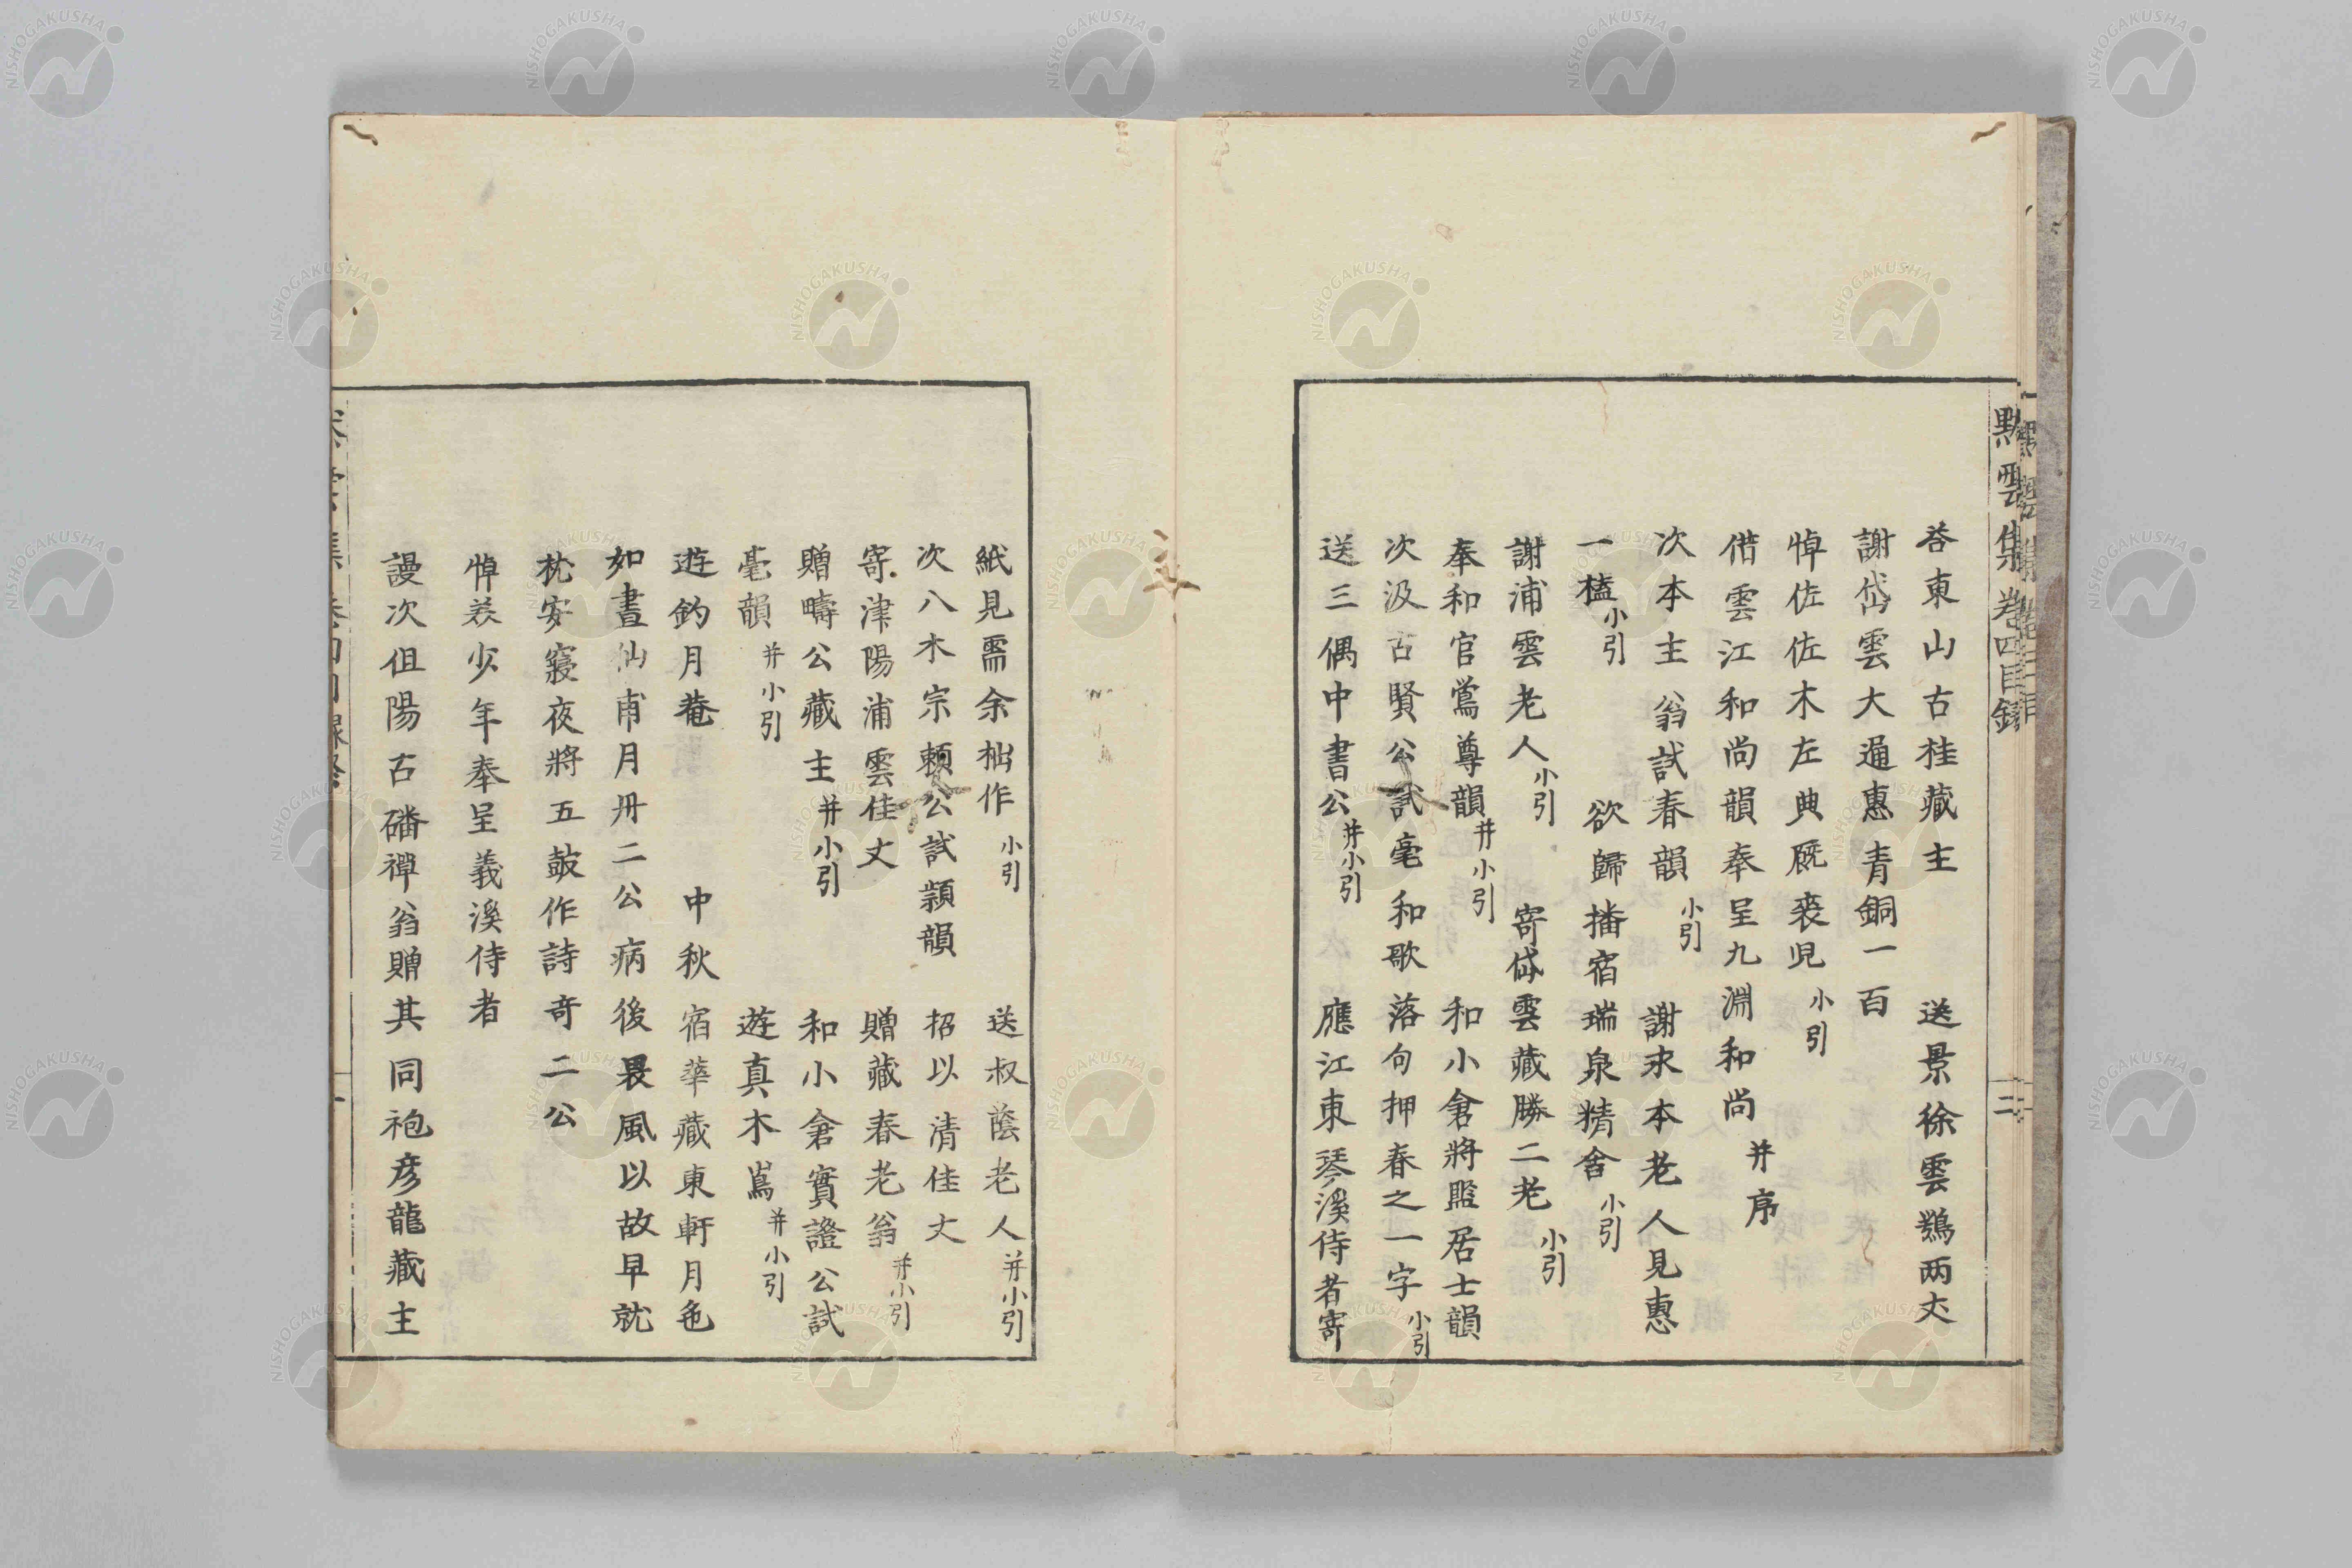 黙雲集卷四目録
二
荅東山古桂藏主 送景徐雲鶚两丈
謝岱雲大通惠青銅一百
悼佐佐木左典厩裘児 小引
借雲江和尚韻奉呈九淵和尚 并序
次本主翁試春韻 小引 謝求本老人見惠
一榼 小引 欲歸播宿瑞泉精舍 小引
謝浦雲老人 小引 寄岱雲藏勝二老 小引
奉和官鶯尊韻 并小引 和小倉將監居士韻
次汲古賢公試毫和歌落句押春之一字 小引
送三偶中書公 并小引 應江東琴溪侍者寄
紙見需余拙作 小引 送叔蔭老人 并小引
次八木宗頼公試穎韻 招以清佳丈
寄津陽浦雲佳丈 贈藏春老翁 并小引
贈疇公藏主 并小引 和小倉實證公試
毫韻 并小引 遊真木嶌 并小引
遊釣月菴 中秋宿華藏東軒月色
如晝仙甫月舟二公病後畏風以故早就
枕安寢夜將五皷作詩竒二公
悼羙少年奉呈義溪侍者
謾次但陽古磻禪翁贈其同袍彦龍藏主
NISHOGAKUSHA